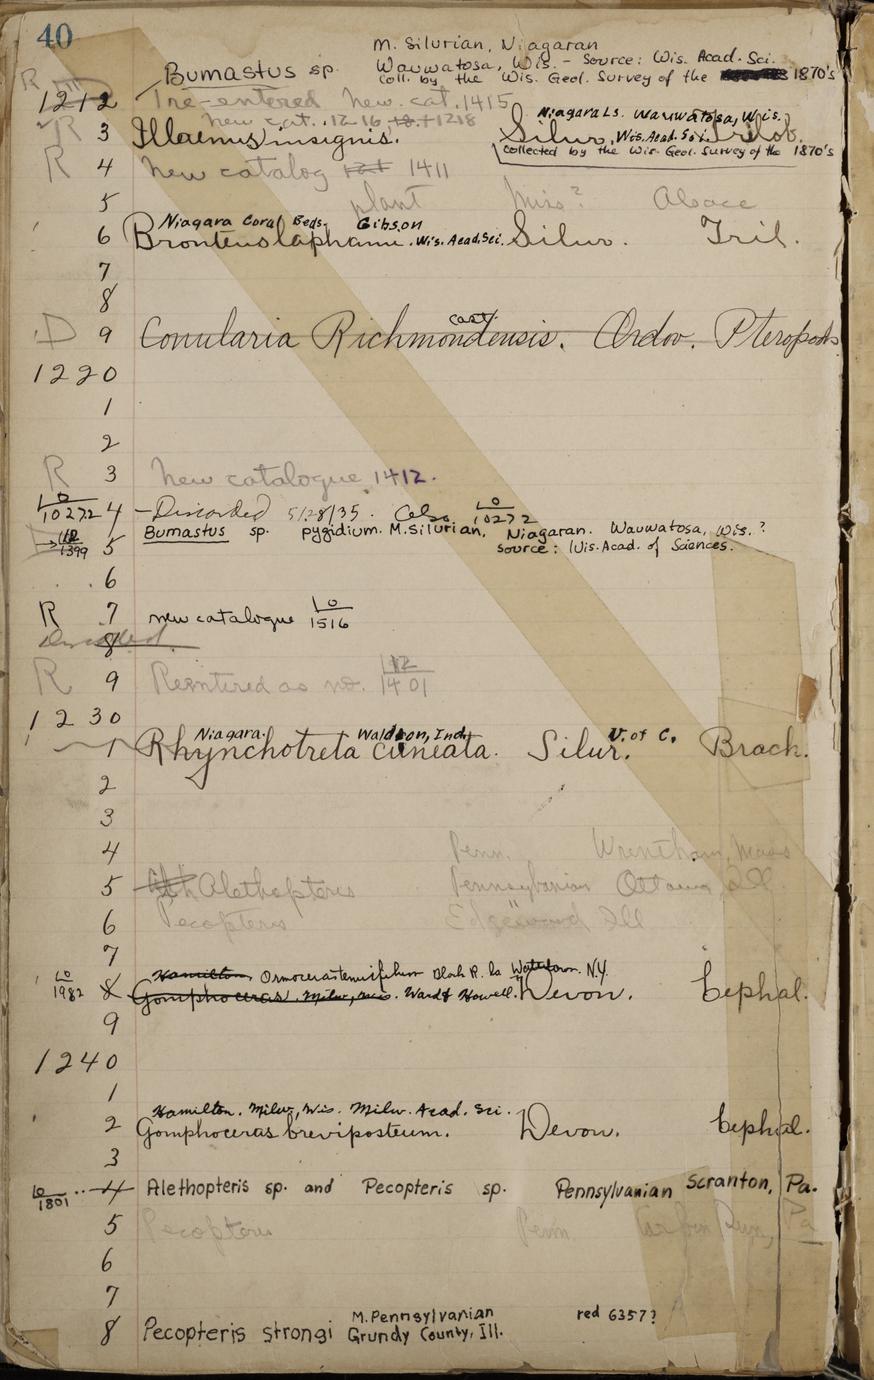 40
M. Silurian, Niagaran
Bumastus sp. Wauwatosa, Wis. - Source: Wis. Acad. Sci.
coll. by the Wis. Geol. Survey of the 1870's
R 1212 Re-entered new cat. 1415
new cat. 12-16 1218 Niagara Ls. Wauwatosa, Wis.
R 3 Illaenus insignis. Silur. Wis. Acad. Sci. Trilob.
collected by the Wis. Geol. Survey of the 1870's
R 4 new catalog 1411
5 plant Miss? Alsace
Niagara Coral Beds. Gibson
6 Bronteus laphami. Wis. Acad. Sci. Silur. Tril.
7
8
cast
D 9 Conularia Richmondensis. Ordov. Pteropods
1220
1
2
R 3 new catalogue 1412.
10272 4 - Discarded 5/28/35. 10272
Bumastus sp. pygidium. M. Silurian, Niagaran. Wauwatosa, Wis.?
1399 5 source: Wis. Acad. of Sciences.
6
R 7 new catalogue 10 1516
Discarded 8
R 9 Reentered as no. 12 1401
1230
Niagara. Waldron, Ind. U. of C.
1 Rhynchotreta cuneata. Silur. Brach.
2
3
4 Penn. Wrentham, Mass
5 Alethopteris Pennsylvanian Ottawa, Ill.
6 Pecopteris Edgewood Ill
7
Hamilton. Ormoceras tenuifilum Black R. ls Watertown. N.Y.
10 1982 8 Gomphoceras. Milw., Wis. Ward & Howell. Devon. Cephal.
9
1240
1
Hamilton. Milw., Wis. Milw. Acad. Sci.
2 Gomphoceras breviposteum. Devon. Cephal.
3
10 1801 4 Alethopteris sp. and Pecopteris sp. Pennsylvanian Scranton, Pa.
5 Pecopteris Penn. Run, Pa
6
7
M. Pennsylvanian red 6357?
8 Pecopteris strongi Grundy County, Ill.